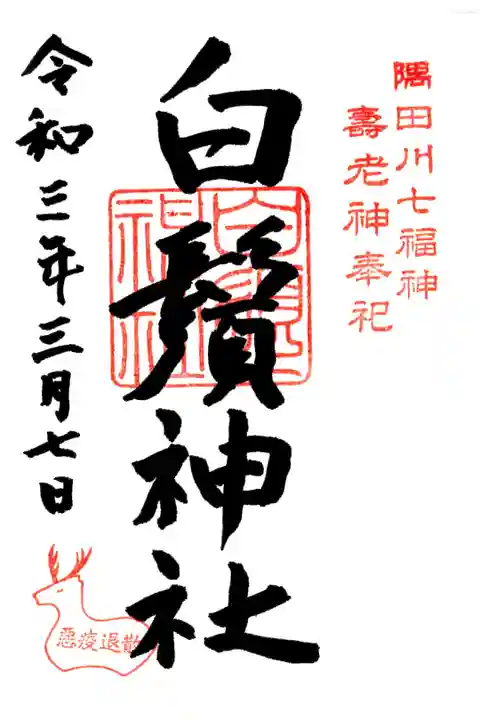 隅田川七福神
壽老神奉祀
白鬚神社
令和三年三月七日
悪疫退散